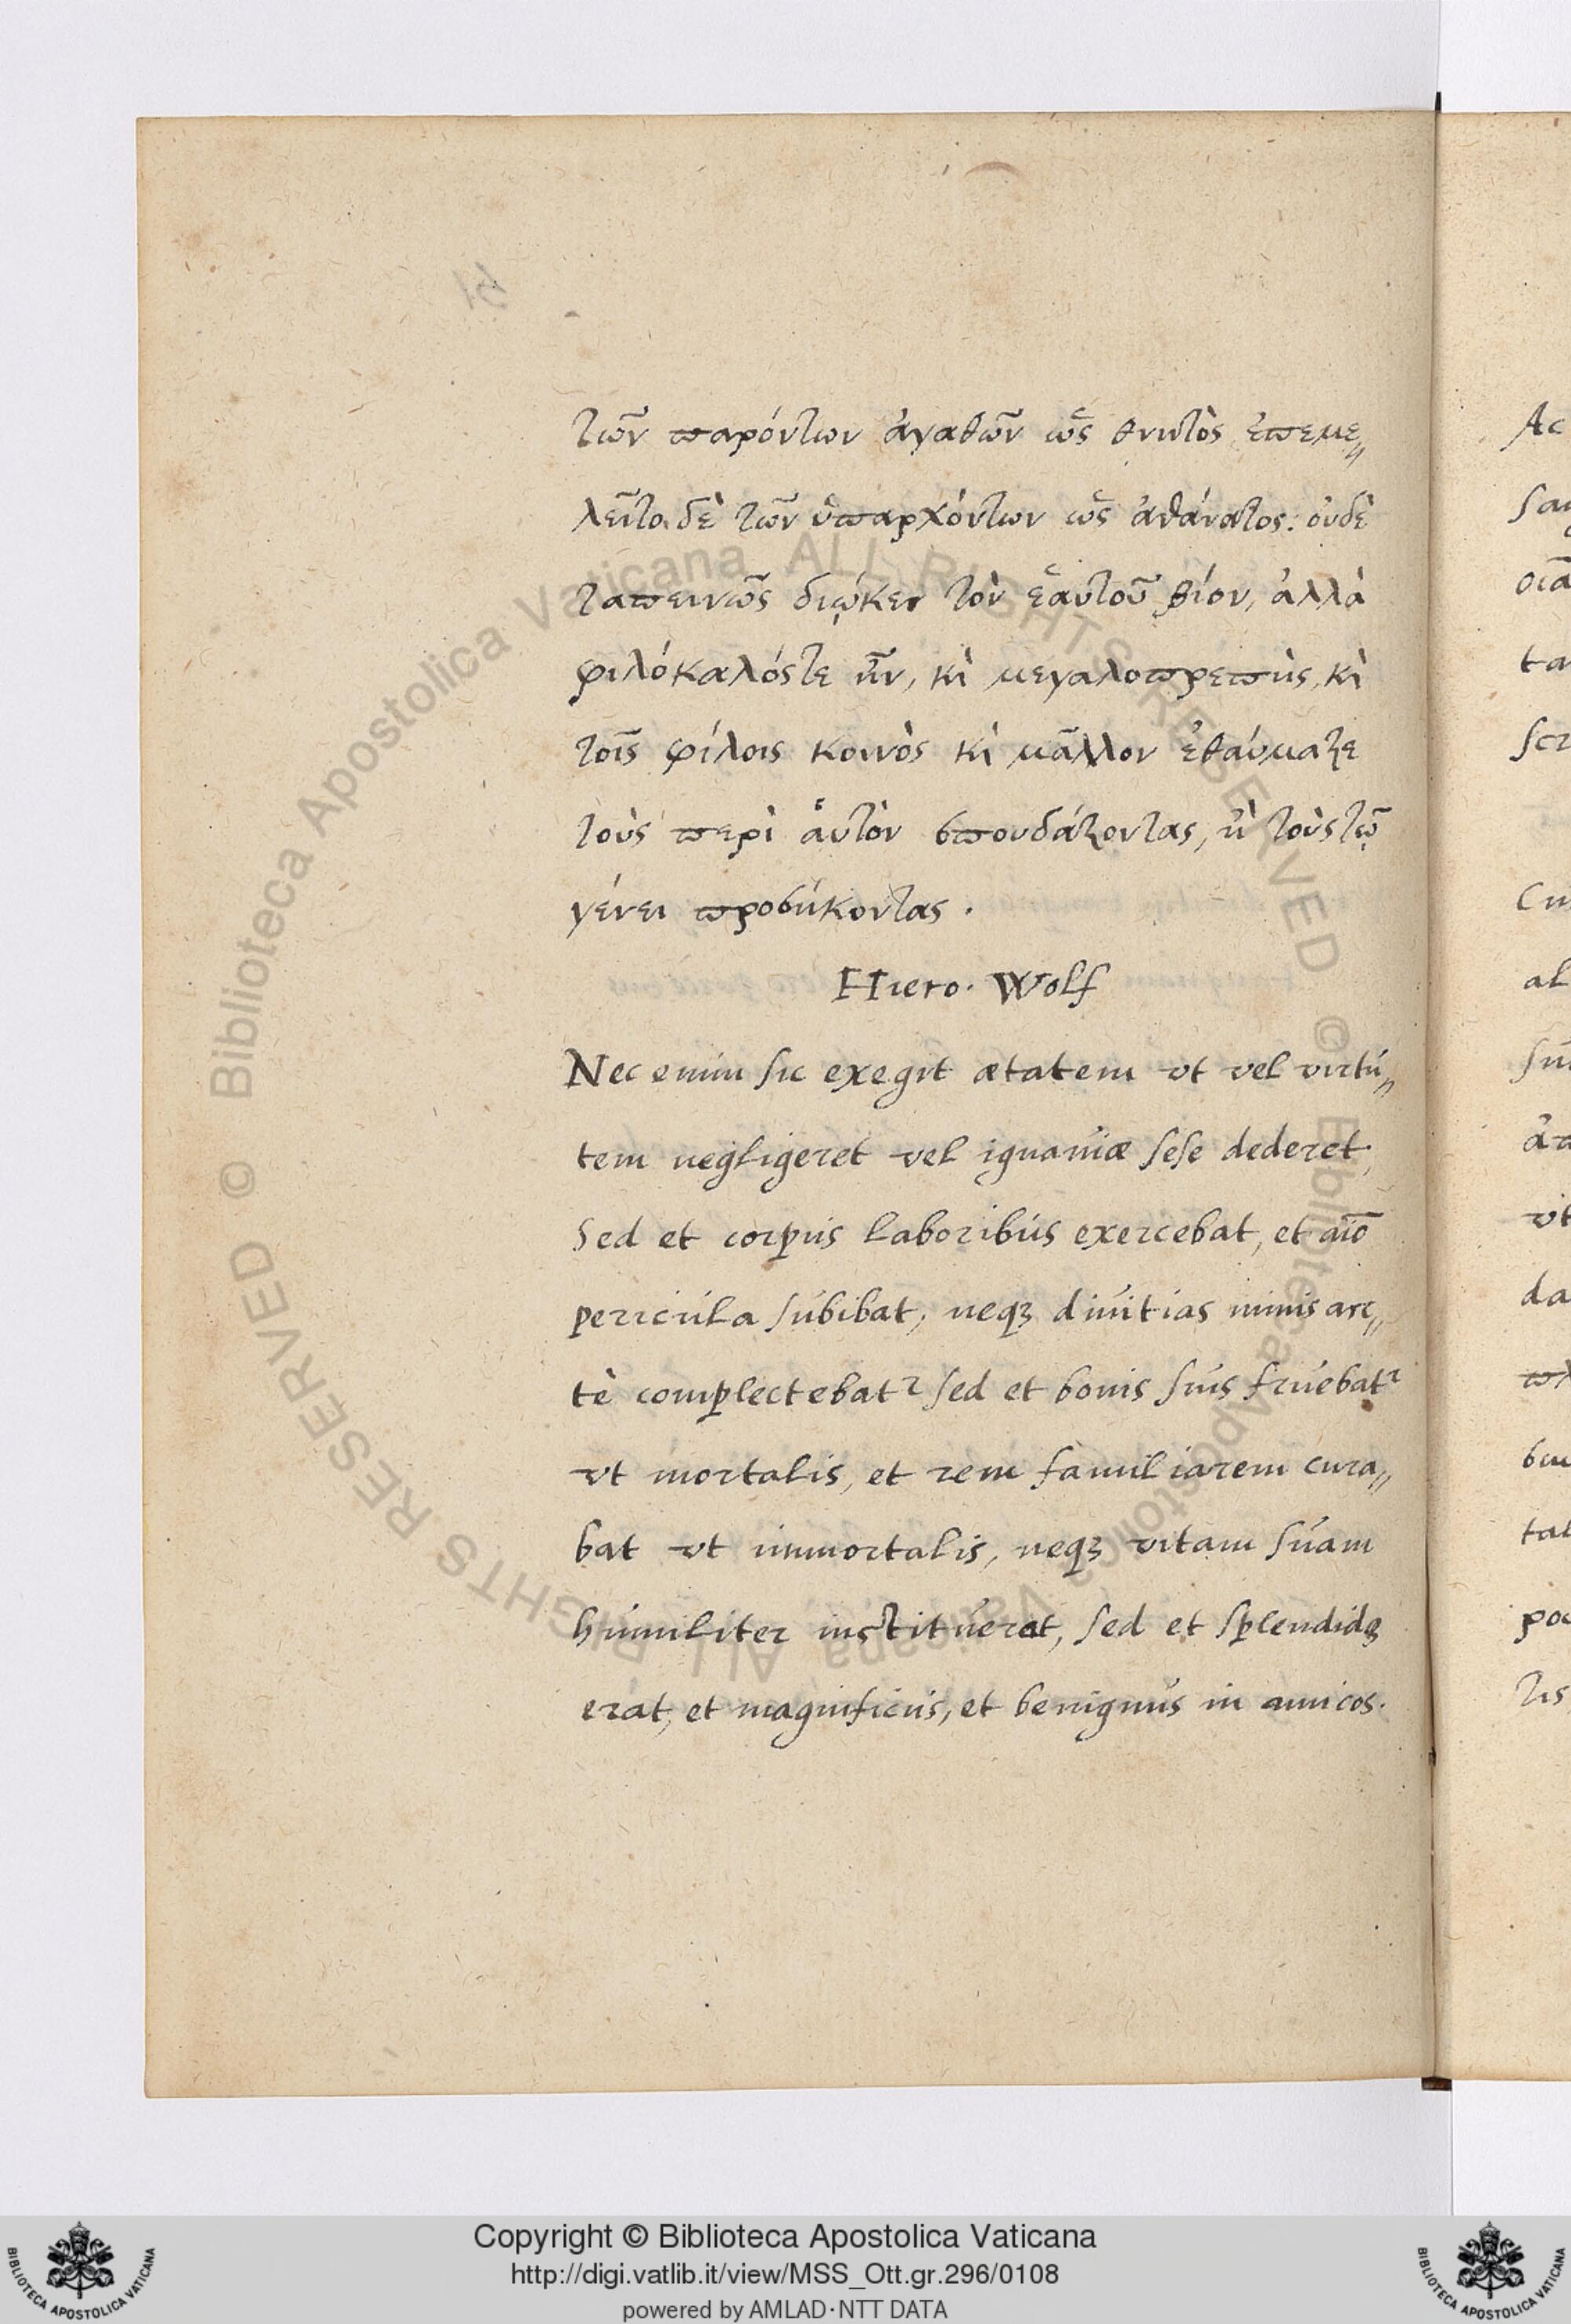 τῶν παρόντων ἀγαθῶν ὡς θνητὸς ἐπεμε〃
λεῖτο δὲ τῶν ὑπαρχόντων ὡς ἀθάνατος: οὐδὲ
ταπεινῶς διῴκει τὸν ἑαυτοῦ βίον, ἀλλὰ
φιλόκαλός τε ἦν, κ̀ μεγαλοπρεπὴς, κ̀
τοῖς φίλοις κοινὸς κ̀ μᾶλλον ἐθαύμαζε
τοὺς περὶ αὑτὸν σπουδάζοντας, ἢ τοὺς τῷ
γένει προσήκοντας.
Hiero. Wolf
Nec enim sic exegit ætatem vt vel virtú〃
tem negligeret vel ignaviæ sese dederet,
Sed et corpus laboribus exercebat, et aīo
pericula subibat, neqꝫ divitias nimis arc〃
tè complectebatᷣ sed et bonis suis fruebatᷣ
vt mortalis, et rem familiarem cura〃
bat vt immortalis, neqꝫ vitam suam
humiliter instituerat, sed et splendidꝰ
erat, et magnificus, et benignus in amicos.
Ac
sa
οιᾶ
ta
scr
Cu
al
vt
da
ta
Copyright © Biblioteca Apostolica Vaticana
http://digi.vatlib.it/view/MSS_Ott.gr.296/0108
powered by AMLAD·NTT DATA
BIBLIOTECA APOSTOLICA VATICANA
BIBLIOTECA APOSTOLICA VATICANA
© Biblioteca Apostolica Vaticana ALL RIGHTS RESERVED © Biblioteca Apostolica Vaticana ALL RIGHTS RESERVED